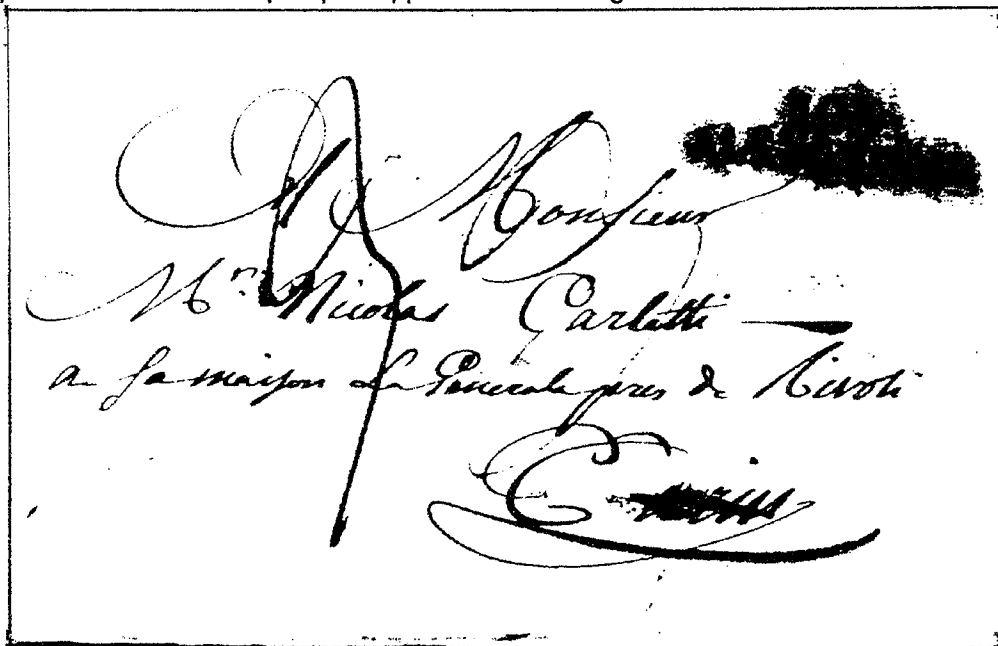 A Monsieur
Mr. Nicolas Carlotti
a sa maison La Generale pres de Rivoli
Turin